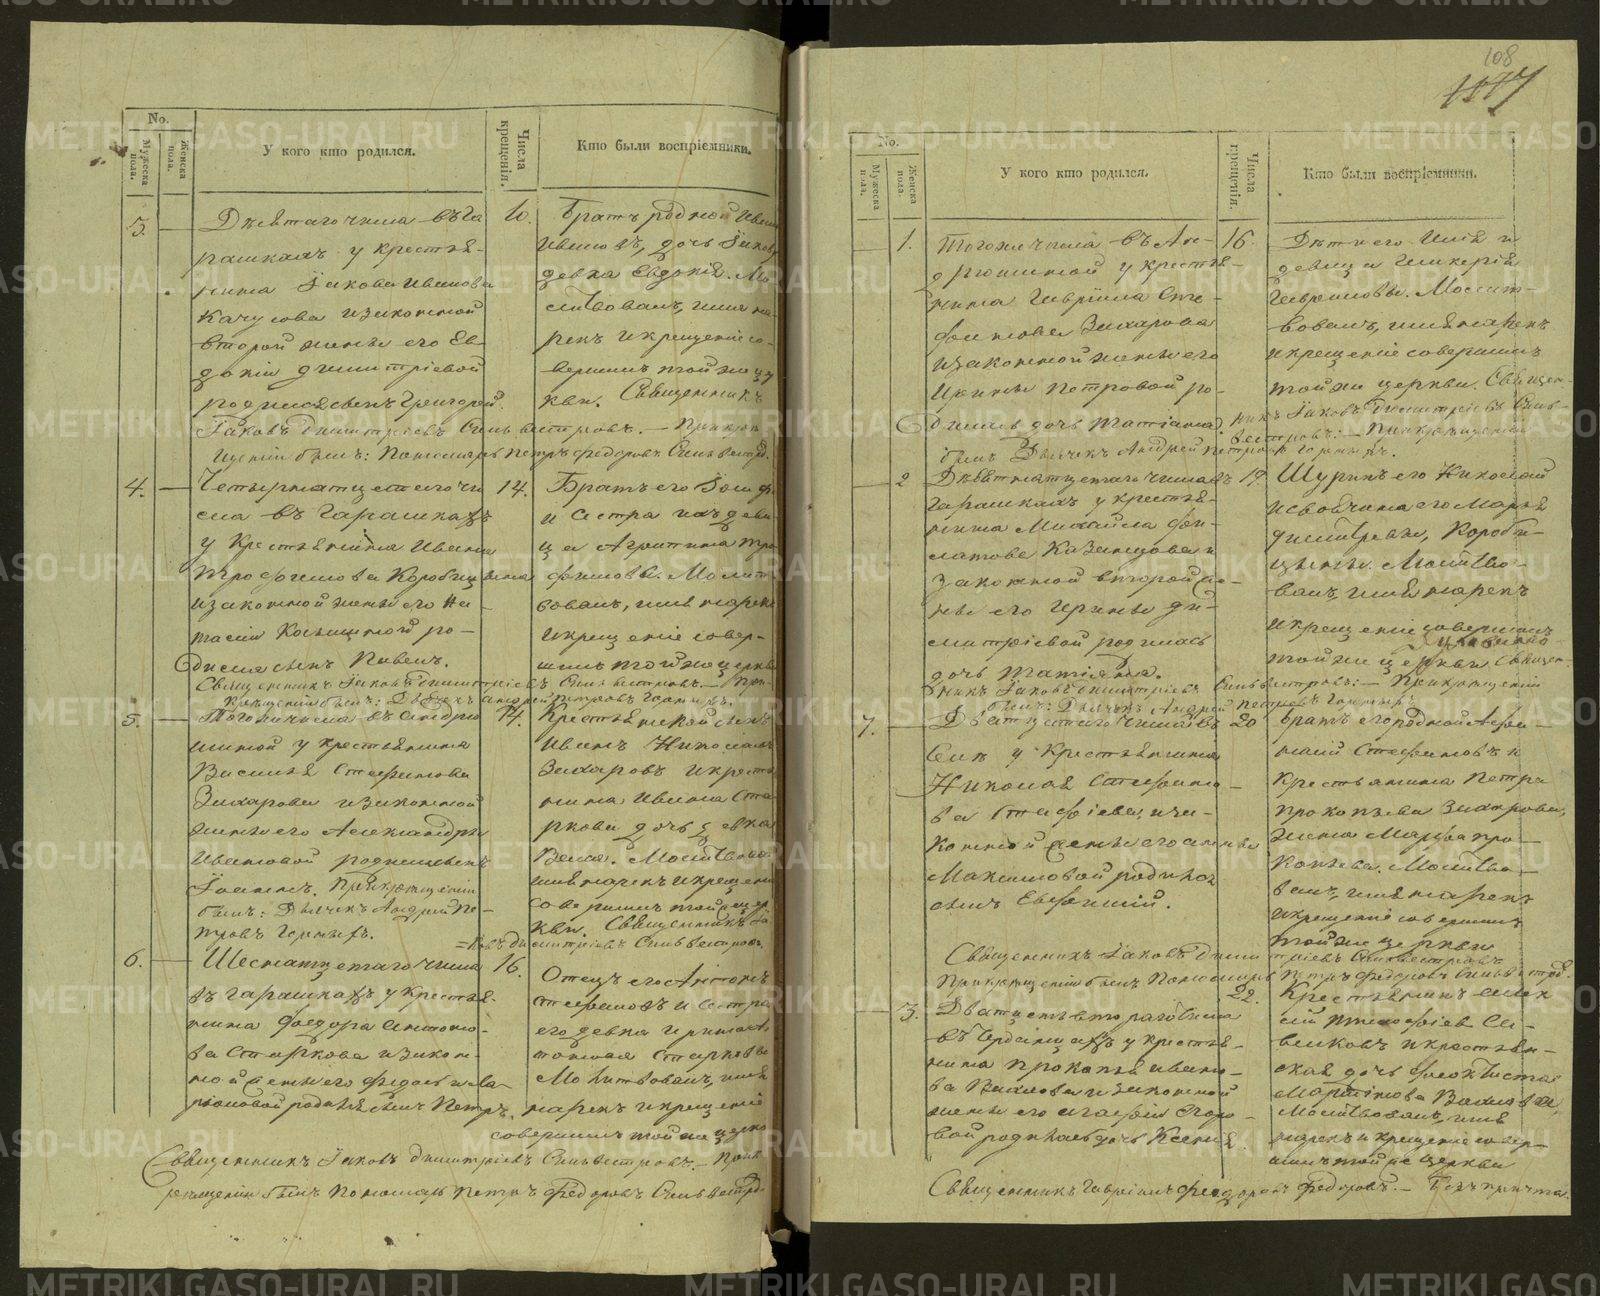 No.
Мужеска пола.
Женска пола.
У кого кто родился.
Числа крещенія.
Кто были воспріемники.
3.
Девятаго числа въ Га
рашкахъ у крестья-
нина Іакова Иванова
Качусова изаконной
второй жены его Ев-
докіи Димитріевой
родился сынъ Григорій.
10.
Братъ родной Иванъ
Ивановъ, дочь Іакова
девка Евдокія. Мо
литвовалъ, имя на-
рекъ икрещеніе со-
вершилъ тойже цер
кви. Священникъ
Іаковъ Димитріевъ Сильвестровъ. — Прикрещ
щеніи былъ: Пономарь Петръ Федоровъ Сильвестр.
4.
Четырнатцетаго чи
сла въ Гарашкахъ
у Крестьянина Ивана
Трофимова Коробицына
изаконной жены его На-
тасіи Козьминой ро-
дился сынъ Павелъ.
14.
Братъ его
и Сестра ихъ деви
ца Агрипина Тро
фимовы. Молит
вовалъ, имя нарекъ
икрещеніе совер-
шилъ тойже церкви
Священникъ Іаковъ Димитріевъ Сильвестровъ. — При-
крещеніи былъ: Дьячекъ Андрей Петровъ Горныхъ.
5.
Тогоже числа въ Андрю
шиной у крестьянина
Василья Стефанова
Захарова изаконной
жены его Александры
Ивановой родился сынъ
Іоаннъ. Прикрещеніи
былъ: Дьячекъ Андрей Пе-
тровъ Горныхъ.
14.
Крестьянской сынъ
Иванъ Николаевъ
Захаровъ икрестья
нина Ивана Ста
ркова дочь девка
Молитвовалъ
имя нарекъ икрещеніе
совершилъ тойже цер
кви. Священникъ Іа
=ковъ Димитріевъ Сильвестровъ.
6.
Шеснатцетаго числа
въ Гарашкахъ у крестья-
нина Федора Антоно-
ва Старкова изакон-
ной жены его Федосьи Ла-
ріоновой родился сынъ Петръ.
16.
Отецъ его Антонъ
Стефановъ и Сестра
его девка Ирина Ан
тонова Старковы
Молитвовалъ, имя
нарекъ икрещеніе
совершилъ тойже церкв
Священникъ Іаковъ Димитріевъ Сильвестровъ. — Прик
рещеніи былъ Пономарь Петръ Федоровъ Сильвестро
108
No.
Мужеска пола.
Женска пола.
У кого кто родился.
Числа крещенія.
Кто были воспріемники.
1.
Тогоже числа въ Ан-
дрюшиной у крестья-
нина Гавріила Сте-
фанова Захарова
изаконной жены его
Ирины Петровой ро-
дилась дочь Татіана.
16.
Дети его Илія и
девица Гликерія
Гавриловы. Молит-
вовалъ, имя нарекъ
икрещеніе совершилъ
тойже церкви. Священ-
никъ Іаковъ Димитріевъ Силь-
вестровъ: — Прикрещеніи
былъ Дьячекъ Андрей Петровъ Горныхъ.
2
Девятнатцетаго числа въ
Гарашкахъ у крестья-
нина Михайла Фи-
латова Казанцова и
законной второй же-
ны его Ирины Ди-
митріевой родилась
дочь Татіана.
19.
Шуринъ его Николай
исвойчина его Марья
Димитревы, Короби-
цыны. Молитво-
валъ, имя нарекъ
икрещеніе совершилъ
тойже церкви Священ-
никъ Іаковъ Димитріевъ Сильвестровъ: — Прикрещеніи
былъ: Дьячекъ Андрей Петровъ Горныхъ.
7.
Двацетаго числа въ
у Крестьянина
Николая Стефано-
ва иза-
конной жены его Анны
Максимовой родился
сынъ Евфимій.
20
братъ его родной Афа-
насій Стефановъ и
Крестьянина Петра
Прокопьева Захарова,
жена Марфа Про-
копьева. Молитво-
валъ, имя нарекъ
икрещеніе совершилъ
тойже церкви
Священникъ Іаковъ Димитріевъ Сильвестровъ
Прикрещеніи былъ Пономарь Петръ Федоровъ Сильвестр.
3.
Двацетьвтораго числа
въ у крестья-
нина Прокопья Ивано-
ва изаконной
жены его Агафіи Егоро-
вой родилась дочь Ксенія.
22.
Крестьянинъ Алек
сій
и крестьян-
ская дочь Феоктиста
Мартинова
Молитвовалъ, имя
нарекъ икрещеніе совер-
шилъ тойже церкви
Священникъ Гавріилъ Феодоровъ Федоровъ. — Безъ причта.